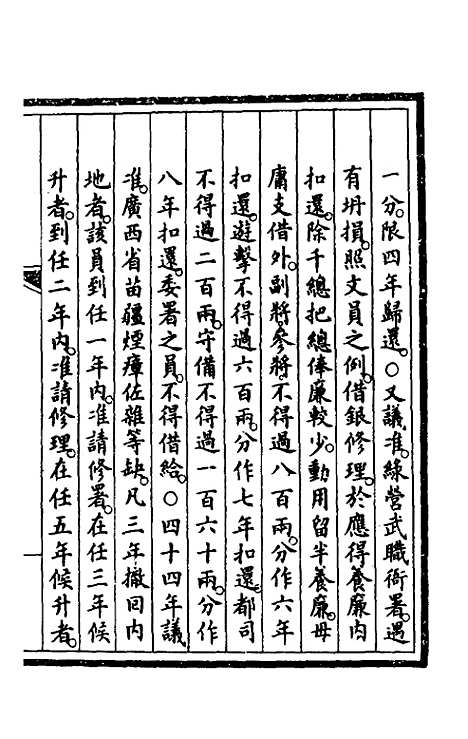 一分。限四年歸還。○又議准綠營武職衙署。遇
有坍損。照文員之例。借銀修理。於應得養廉內
扣還。除千總把總俸廉較少。動用留半養廉。毋
庸支借外。副將。參將。不得過八百兩。分作六年
扣還。遊擊不得過六百兩。分作七年扣還。都司
不得過二百兩。守備不得過一百六十兩。分作
八年扣還。委署之員。不得借給。○四十四年議
准。廣西省苗疆煙瘴佐雜等缺。凡三年撤回內
地者。該員到任一年內。准請修署。在任三年候
升者。到任二年內。准請修理。在任五年候升者。